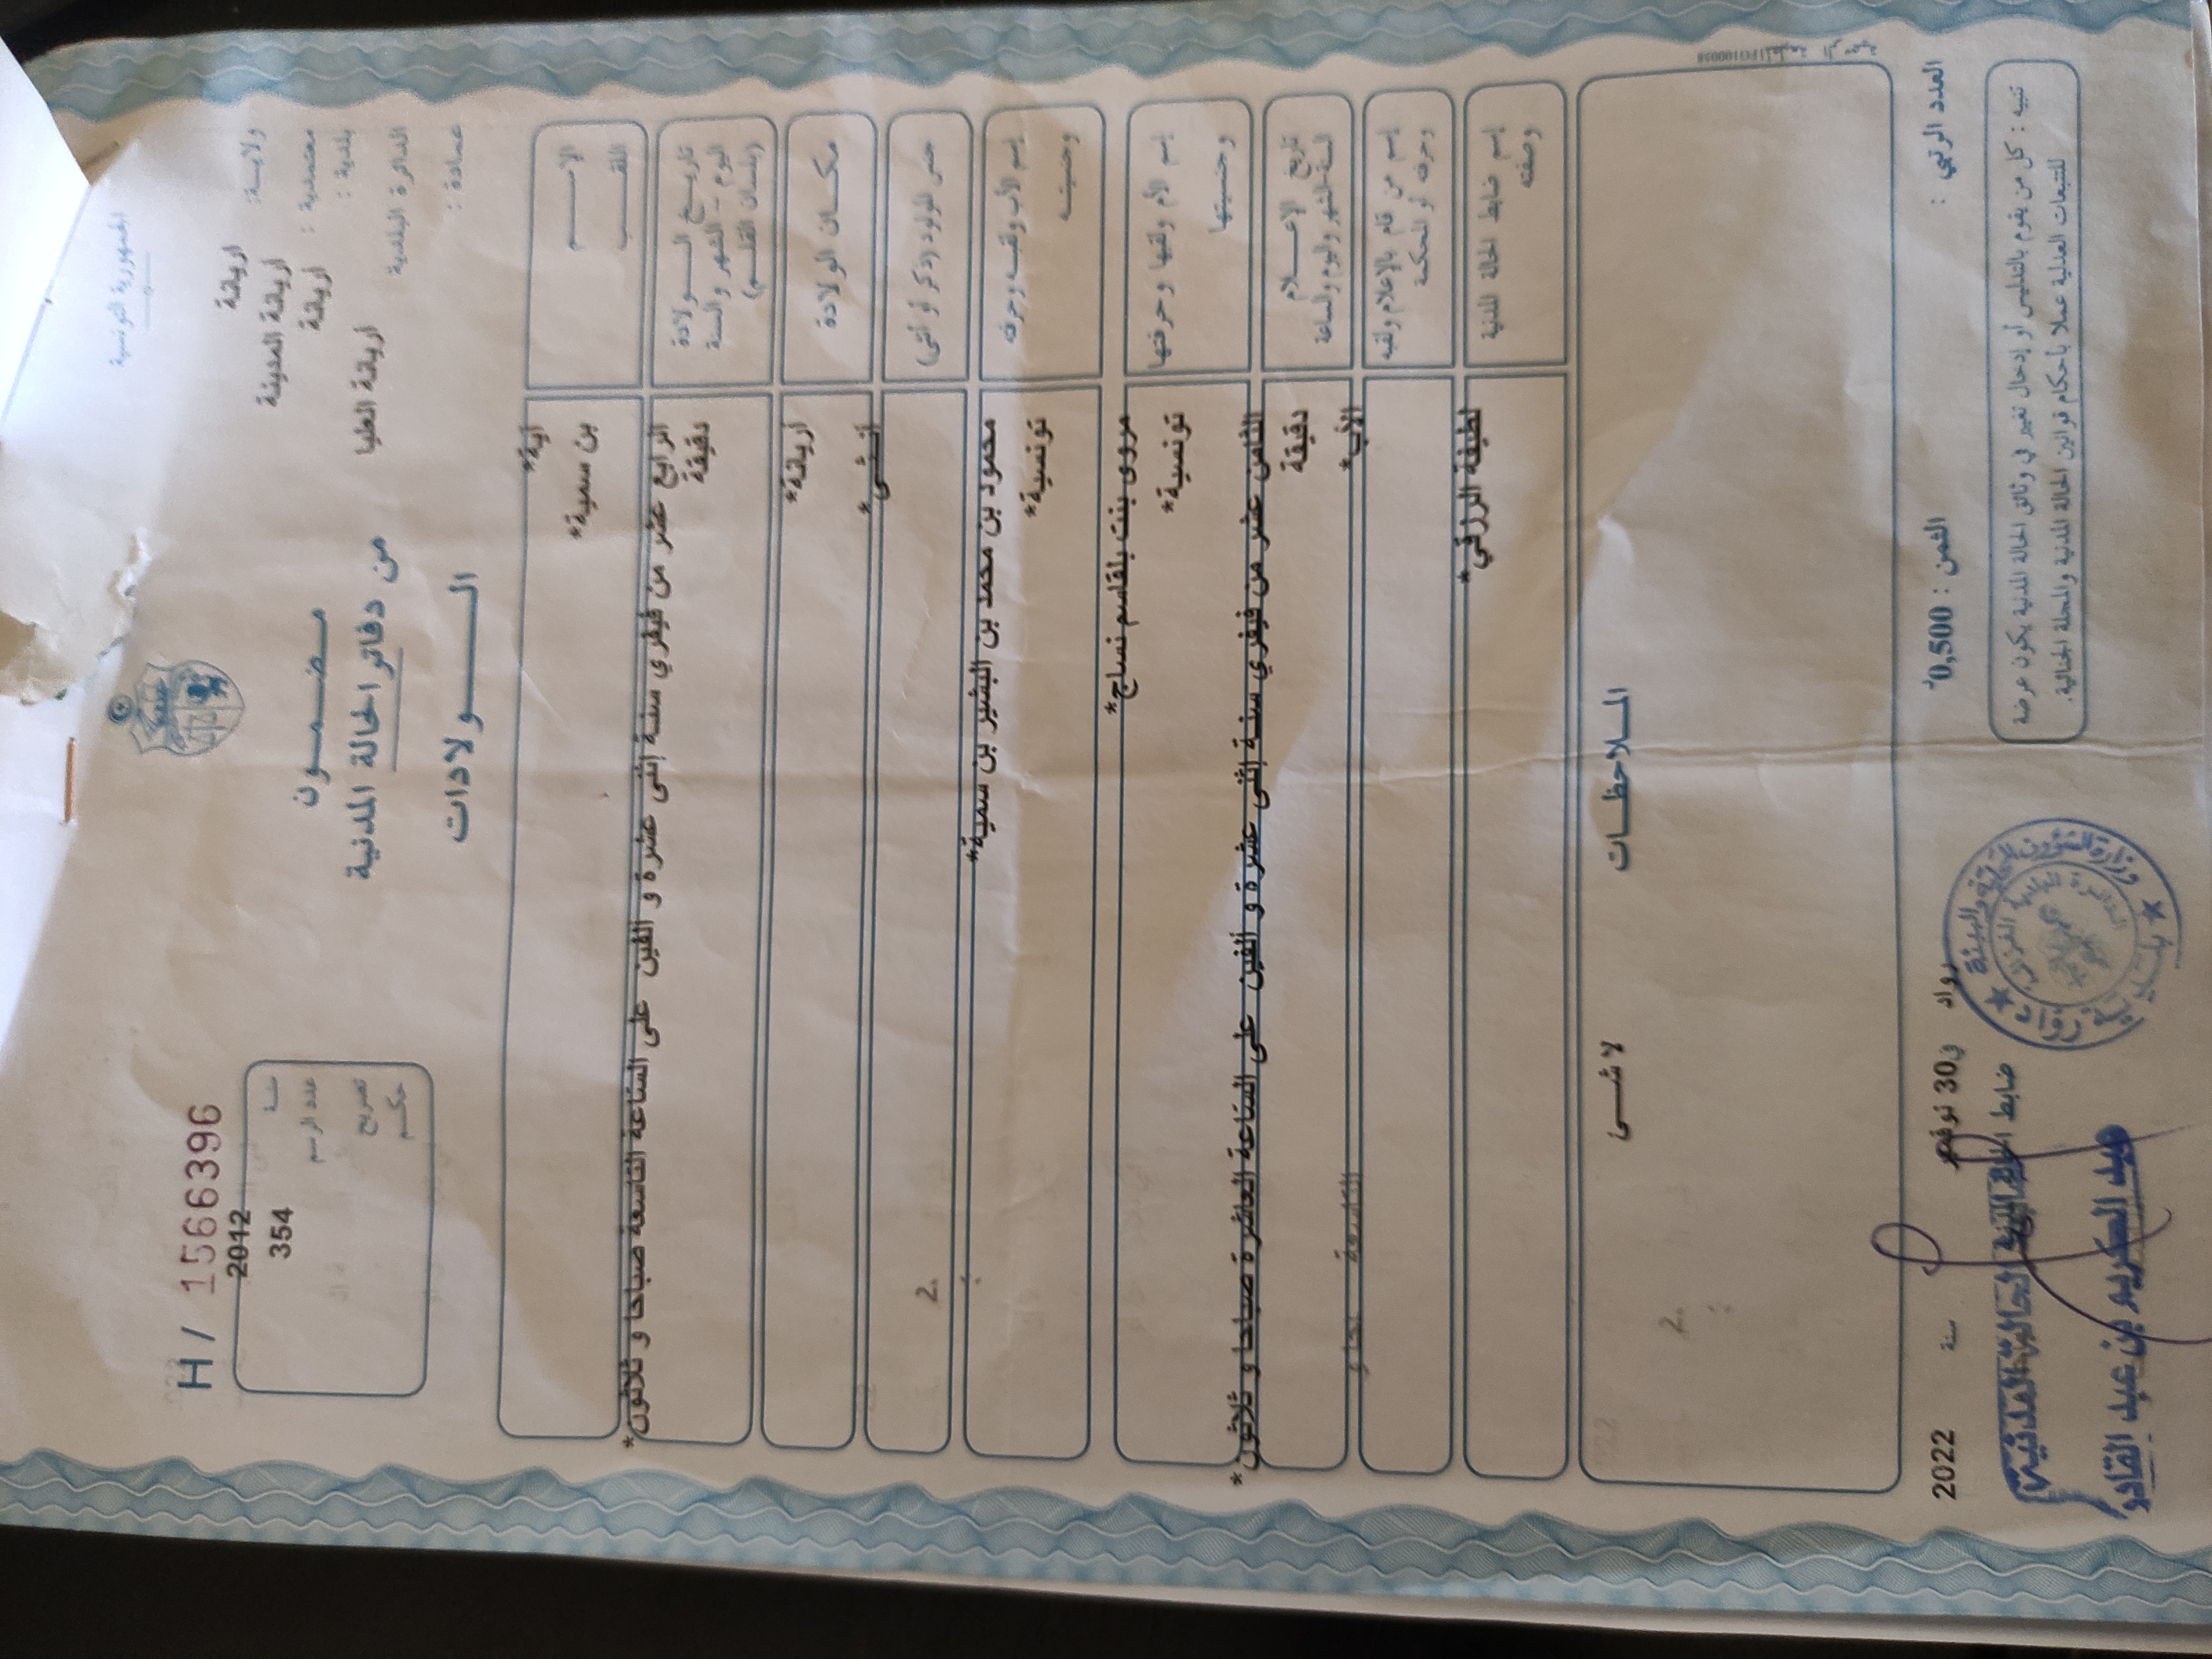 الجمهورية التونسية
ولاية: اريانة
معتمدية : اريانة المدينة
بلدية : اريانة
الدائرة البلدية اريانة العليا
عمادة :
مضمون
من دفاتر الحالة المدنية
الولادات
H / 1566396
سنة 2012
عدد الرسم 354
تصريح
حكم
الاسم آية*
اللقب بن سمية*
تاريخ الولادة الرابع عشر من فيفري سنة إثنى عشرة و الفين على الساعة التاسعة صباحا و ثلاثون*
اليوم - الشهر والسنة دقيقة
(بلسان القلم)
مكان الولادة اريانة*
جنس المولود (ذكر أو أنثى) أنثى*
إسم الأب ولقبه وحرفته محمود بن محمد بن البشير بن سمية*
وجنسيته تونسية*
إسم الأم ولقبها وحرفتها مروى بنت بلقاسم نساج*
وجنسيتها تونسية*
تاريخ الإعلام الثامن عشر من فيفري سنة إثنى عشرة و ألفين على الساعة العاشرة صباحا و ثلاثون*
السنة-الشهر واليوم والساعة دقيقة
إسم من قام بالإعلام ولقبه الأب*
وحرفته أو المحكمة
إسم ضابط الحالة المدنية لطيفة الرزقي*
وصفته
الملاحظات
لا شئ
العدد الرتبي :
الثمن : 0,500
رواد في 30 نوفمبر سنة 2022
تنبيه : كل من يقوم بالتدليس أو إدخال تغيير في وثائق الحالة المدنية يكون عرضة
للتتبعات العدلية عملا بأحكام قوانين الحالة المدنية والمجلة الجنائية.
ضابط الحالة المدنية
وزارة الشؤون المحلية والبيئة
عبد الكريم بن عبد القادر